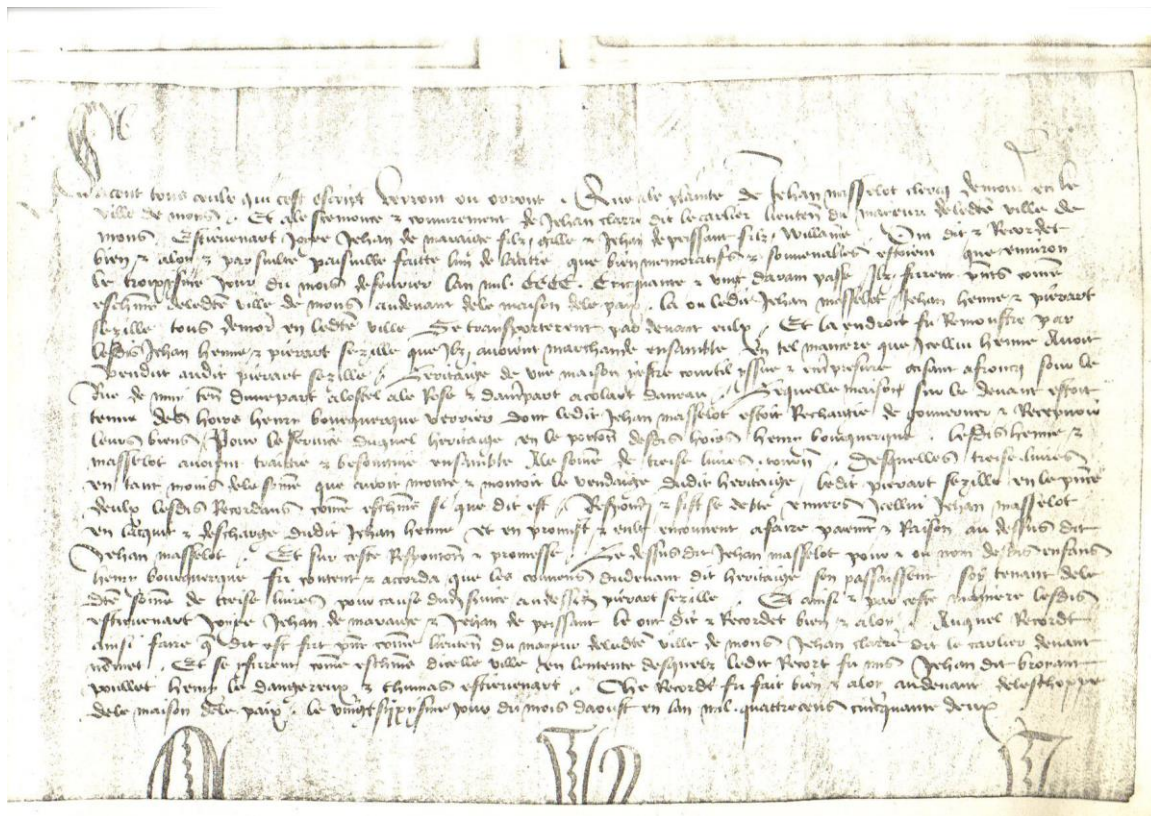 Sacent tous ceulx qui cest escript verront ou orront . Que ale plainte de Jehan masselot clercq demor en le
ville de mons . Et ale semonce z conjurement de Jehan claret dit le carlier lieuten du maieur deledte ville de
mons . Estievenart Jehan de maraige filz gille z Jehan de peissant filz Willame . Ont dit z Recordet
bien z aloy z par siulte paisiulle faitte lun de lautre que bien memoratifs z souvenables estoient que environ
le jour du mois de fevrier lan mil . CCCC . Cincquante z ung daram passe Ilz furent pns come
eschins deledte ville de mons audevant dele maison dele paix . la ou ledit Jehan masselot Jehan henne z pierart
sezille tous demor en ledte ville Se transporterent par devant eulx . Et la endroit fu Remonstre par
lesdis Jehan henne z pierart sezille que Ilz avoient marchande ensamble en tel maniere que Icellui henne Avoit
vendut audit pierart sezille . Leritaige de une maison estre courtil yssue z entrepresure gisant sour le
Rue de ten dunepart alostel ale Rose z daultrepart a colart daneau . Lequelle maison sur le devant estoit
tenue des hoirs henry bourquerque verrier dont ledit Jehan masselot estoit Rechargie de gouverner z Recepvoir
leurs biens . Pour le service duquel heritaige en le porcion desdis hoirs henry bourquerque . lesdis henne z
masselot avoient traittie z besongnie ensamble Ale some de treise livres . torn . Desquelles treise livres
en tant moins dele some que avoit monte z montoit le vendaige dudit heritaige . ledit pierart sezille en le pnce
deulx lesdis Recordans come eschins si que dit est . Respondi z fist se debte envers Icellui Jehan masselot
en lacquit z descharge dudit Jehan henne . et en promist z eult enconvent afaire paiemt z Raison au dessus dit
Jehan masselot . Et sur ceste Responcion z promesse . Le dessusdit Jehan masselot pour z ou nom desdis enfans
henry bourquerque fu content z accorda que les convens dudevant dit heritaige son passaissent . soy tenant dele
dte some de treise livres pour cause dudit service audessusdit pierart sezille . Et ainsi z par ceste maniere lesdis
estievenart Jehan de maraige z Jehan de peissant le ont dit z Recordet bien z aloy . Auquel Recordt
ainsi faire q dit est fut pnt come lieuten du maieur deledte ville de mons Jehan claret dit le carlier devant
nomet . Et se y furent come eschins dicelle ville en lentente desquelz ledit Recort fu mis Jehan dit broyant
poullet henry le dangereux z thumas estievenart . Che Recordt fu fait bien z aloy audevant
dele maison dele paix . le vingt jour du mois daoust en lan mil . quattrecens cincquante deux